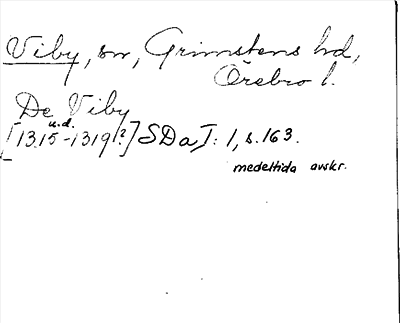 Viby, sn, Grimstens hd,
Örebro l.
De Viby
u.d.
[1315-1319?] SDaI: 1, s. 163.
medeltida avskr.